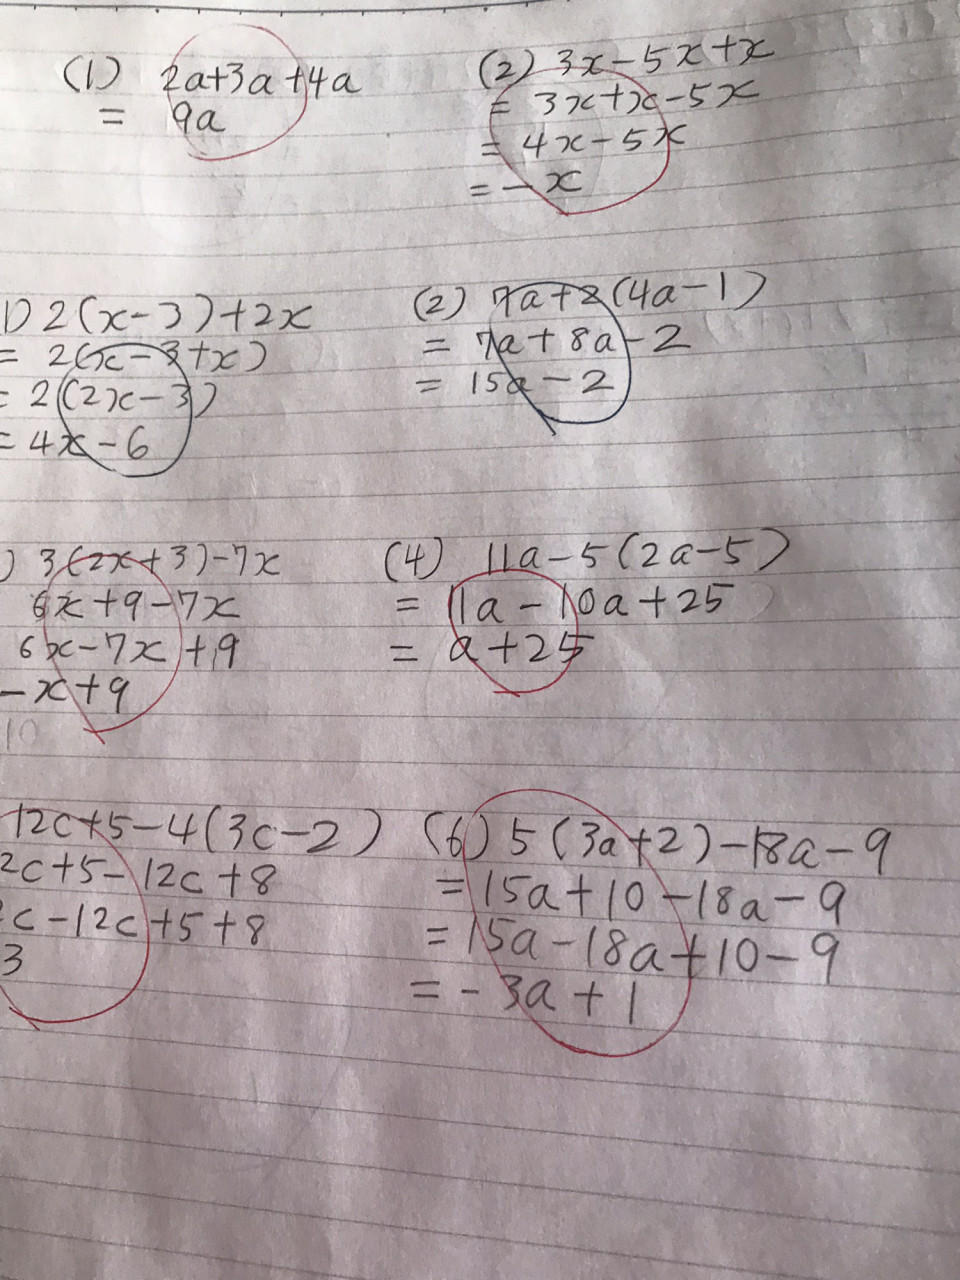 (1) 2a+3a+4a
= 9a
(2) 3x-5x+x
= 3x+x-5x
= 4x-5x
= -x
1) 2(x-3)+2x
= 2(x-3+x)
= 2(2x-3)
= 4x-6
(2) 7a+2(4a-1)
= 7a+8a-2
= 15a-2
) 3(2x+3)-7x
6x+9-7x
6x-7x+9
-x+9
10
(4) 11a-5(2a-5)
= 11a-10a+25
= a+25
12c+5-4(3c-2)
2c+5-12c+8
2c-12c+5+8
3
(6) 5(3a+2)-18a-9
= 15a+10-18a-9
= 15a-18a+10-9
= -3a+1